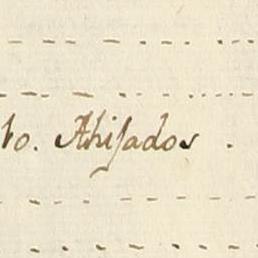 to. Ahijados .